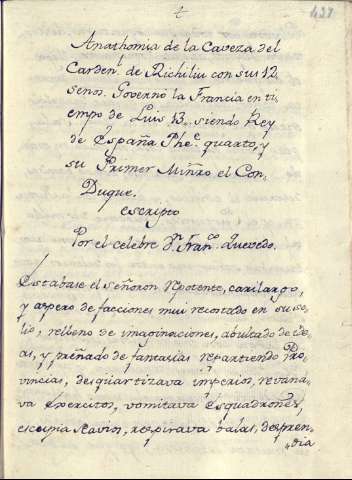 1
437
Anathomia de la Caveza del
Cardenl. de Richiliu con sus 12
senos. Governó la Francia en ti
empo de Luis 13. siendo Rey
de España Phee. quarto, y
su Primer Minro el Con
Duque.
escripto
Por el celebre Dn. Franco. Quevedo.
Estabase el señoron repotente, carilargo,
y aspero de facciones mui recostado en su so
lio, relleno de imaginaciones, abultado de ide
as, y preñado de fantasias repartiendo Pro
vincias, desquartizava imperios, revana
va Exercitos, vomitava Esquadrones,
escupia Navios, respirava balas, despren
dia